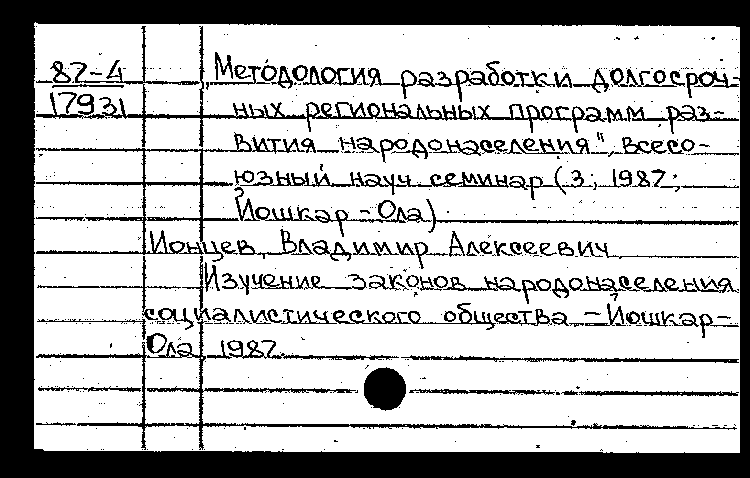 87-4 „Методология разработки долгосроч-
17931 ных региональных программ раз-
вития народонаселения", всесо-
юзный науч. семинар (3; 1987;
Йошкар-Ола).
Ионцев, Владимир Алексеевич.
Изучение законов народонаселения
социалистического общества - Йошкар-
Ола, 1987.